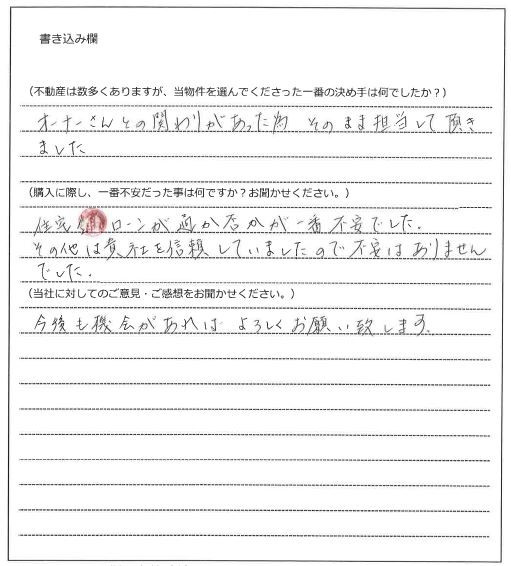 書き込み欄
(不動産は数多くありますが、当物件を選んでくださった一番の決め手は何でしたか?)
オーナーさんとの関わりがあった為 そのまま担当して頂き
ました
(購入に際し、一番不安だった事は何ですか?お聞かせください。)
住宅 ローンが通か否かが一番不安でした.
その他は貴社を信頼していましたので不安はありません
でした.
(当社に対してのご意見・ご感想をお聞かせください。)
今後も機会があれば よろしくお願い致します.